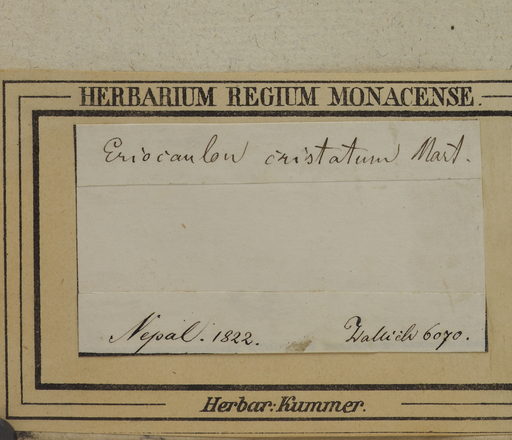 HERBARIUM REGIUM MONACENSE.
Eriocaulon cristatum Mart.
Nepal. 1822. Wallich 6070.
Herbar: Kummer.